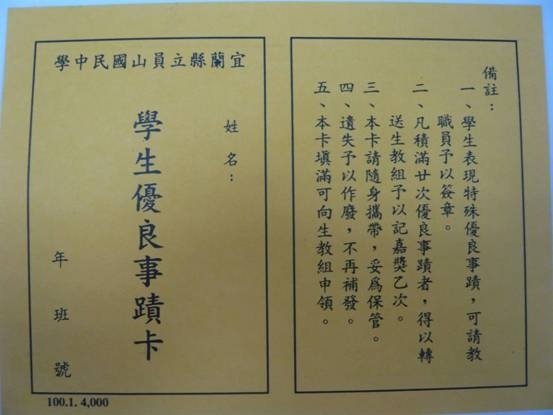 備註：
一、學生表現特殊優良事蹟，可請教
職員予以簽章。
二、凡積滿廿次優良事蹟者，得以轉
送生教組予以記嘉獎乙次。
三、本卡請隨身攜帶，妥為保管。
四、遺失予以作廢，不再補發。
五、本卡填滿可向生教組申領。
宜蘭縣立員山國民中學
姓名：
學生優良事蹟卡
年 班 號
100.1. 4,000